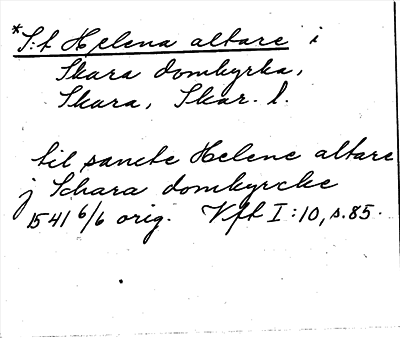 *S:t Helena altare i
Skara domkyrka,
Skara, Skar. l.
til sancte Helene altare
j Schara domkyrcke
1541 6/6 orig. Vft I:10, s.85.